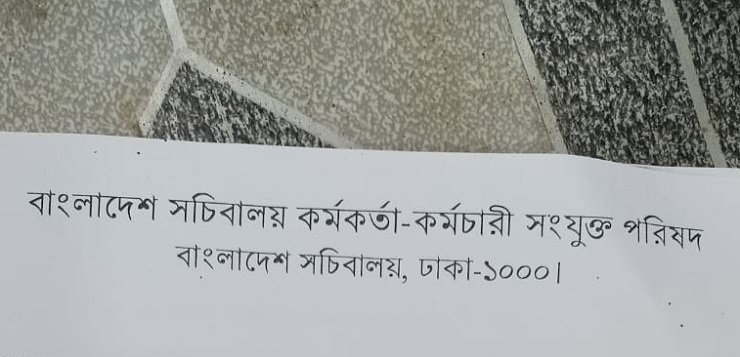 বাংলাদেশ সচিবালয় কর্মকর্তা-কর্মচারী সংযুক্ত পরিষদ
বাংলাদেশ সচিবালয়, ঢাকা-১০০০।